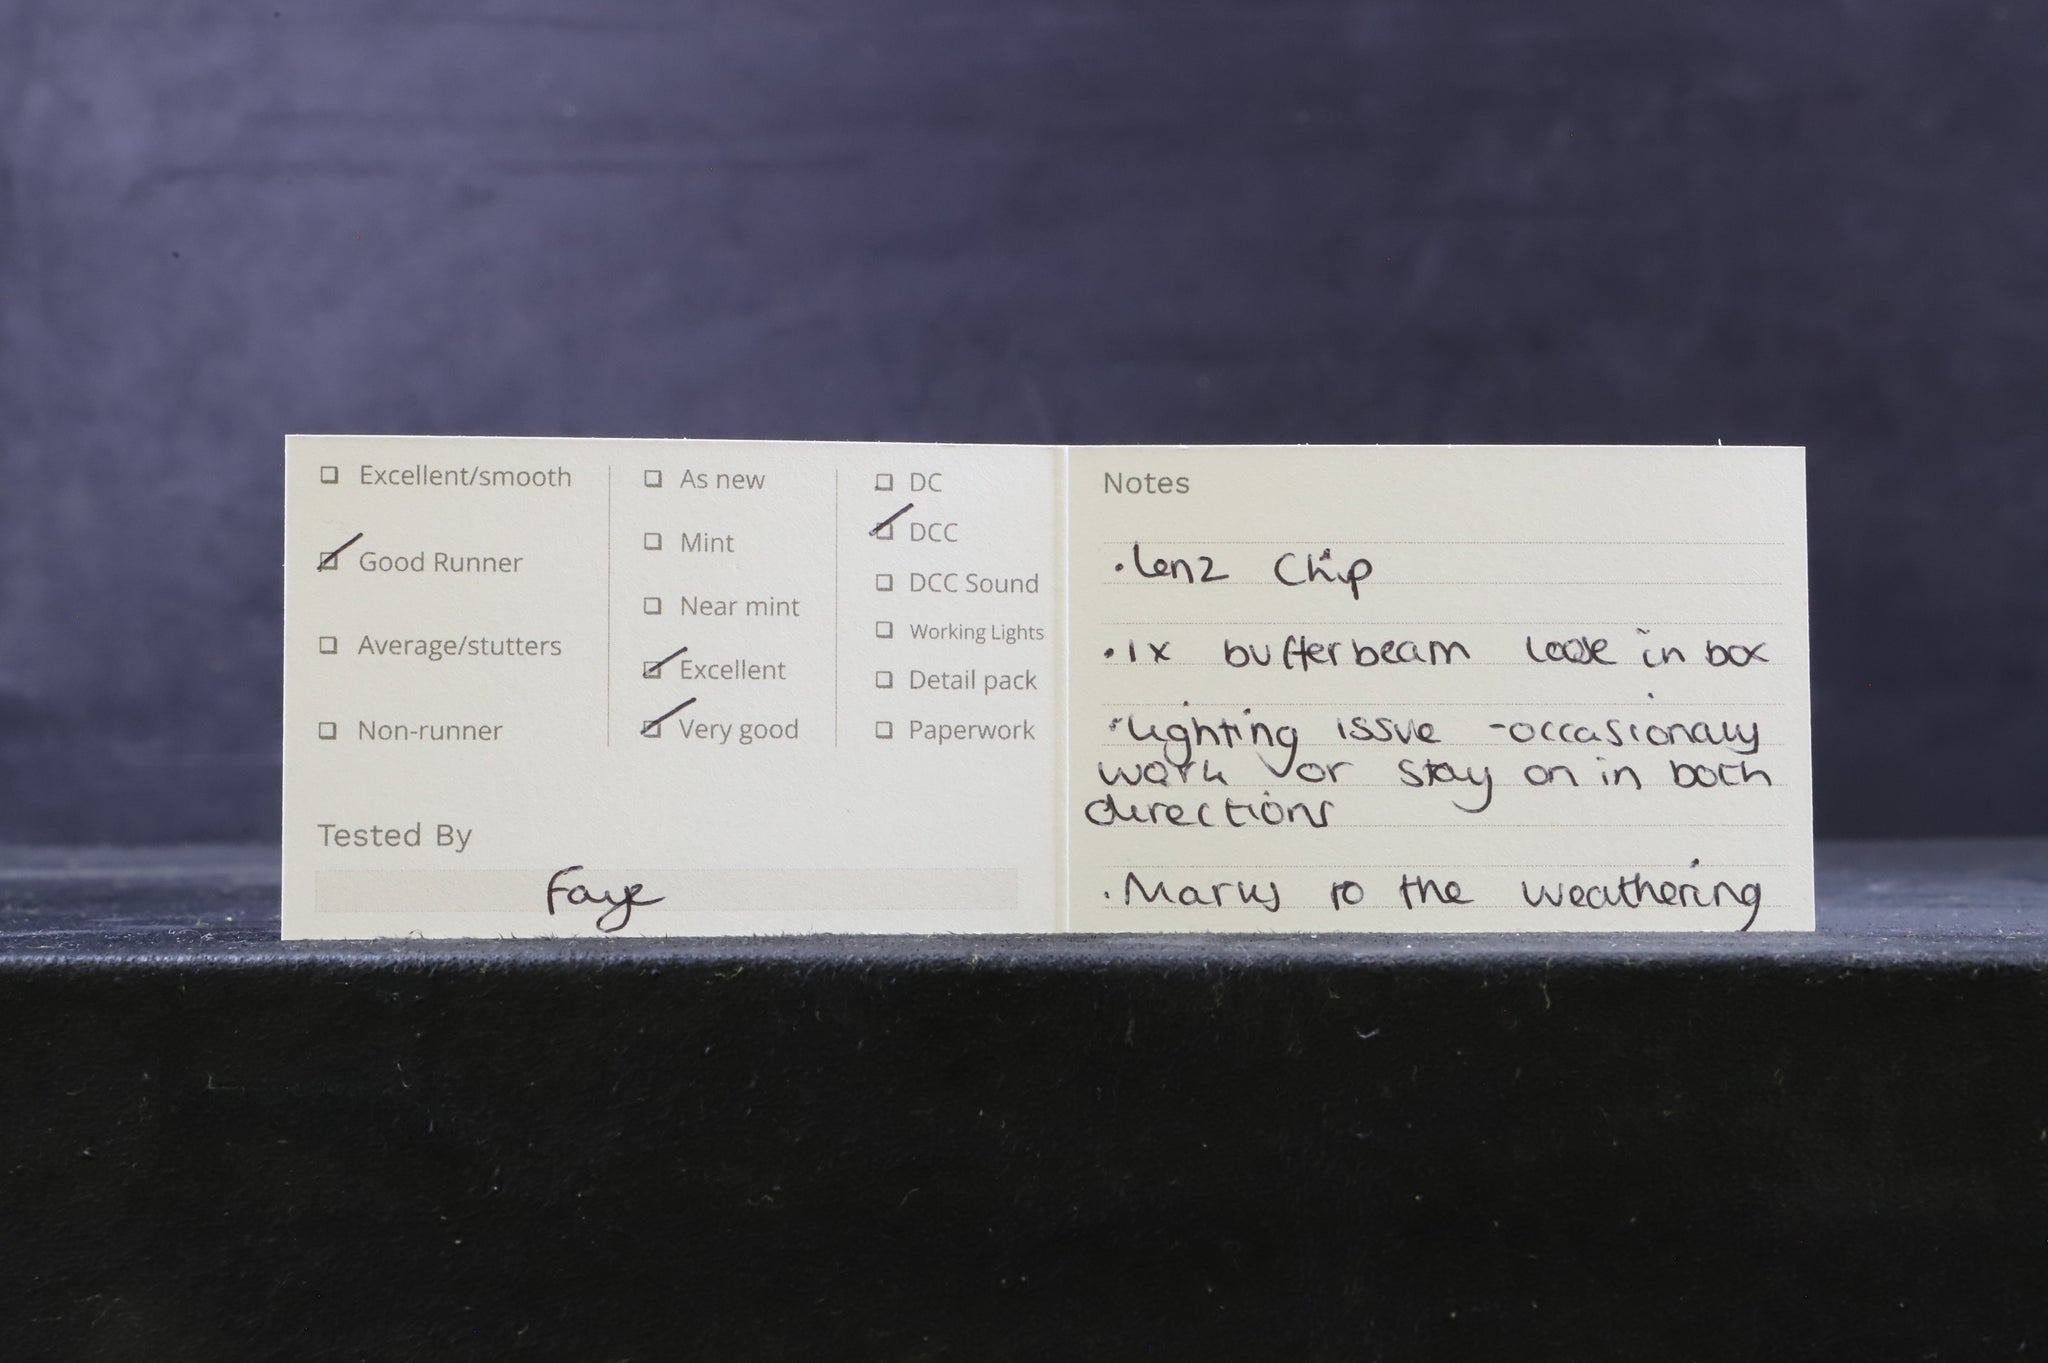 Excellent/smooth
Good Runner
Average/stutters
Non-runner
As new
Mint
Near mint
Excellent
Very good
DC
DCC
DCC Sound
Working Lights
Detail pack
Paperwork
Tested By
Faye
Notes
· Lenz Chip
· 1x bufferbeam loose in box
· Lighting issue - occasionally
work or stay on in both
directions
· Marks to the weathering